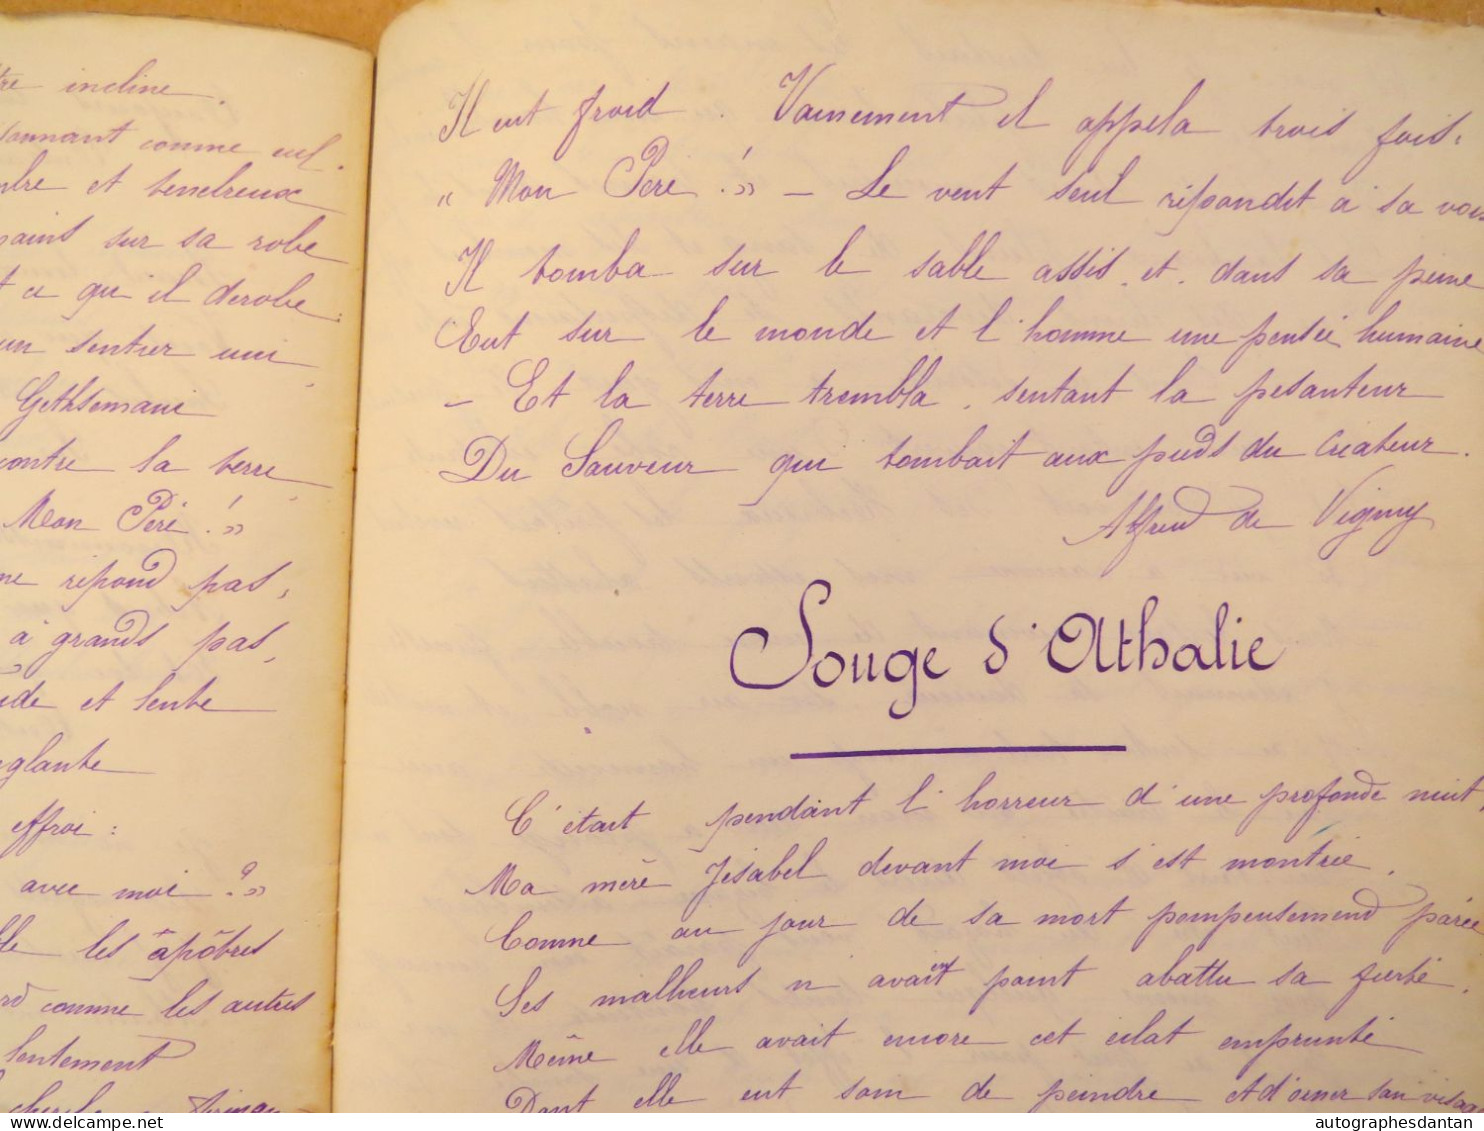 incline.
comme eul.
et tenebreux
sur sa robe
ce qu'il derobe.
un sentier uni
Gethsemani
contre la terre
Mon Père !»
ne répond pas,
à grands pas,
et lente
effroi :
avec moi ?»
les âpôtres
comme les autres
lentement
Il eut froid. Vainement il appela trois fois.
« Mon Père !» — Le vent seul répondit à sa voix
Il tomba sur le sable assis, et, dans sa peine
Eut sur le monde et l'homme une pensée humaine
— Et la terre trembla, sentant la pesanteur
Du Sauveur qui tombait aux pieds du Créateur.
Alfred de Vigny
Songe d'Athalie
C'était pendant l'horreur d'une profonde nuit
Ma mère Jésabel devant moi s'est montrée,
Comme au jour de sa mort pompeusement parée
Ses malheurs n'avaient point abattu sa fierté,
Même elle avait encore cet éclat emprunté
Dont elle eut soin de peindre et d'orner son visage
© autographesdantan
autographesdantan